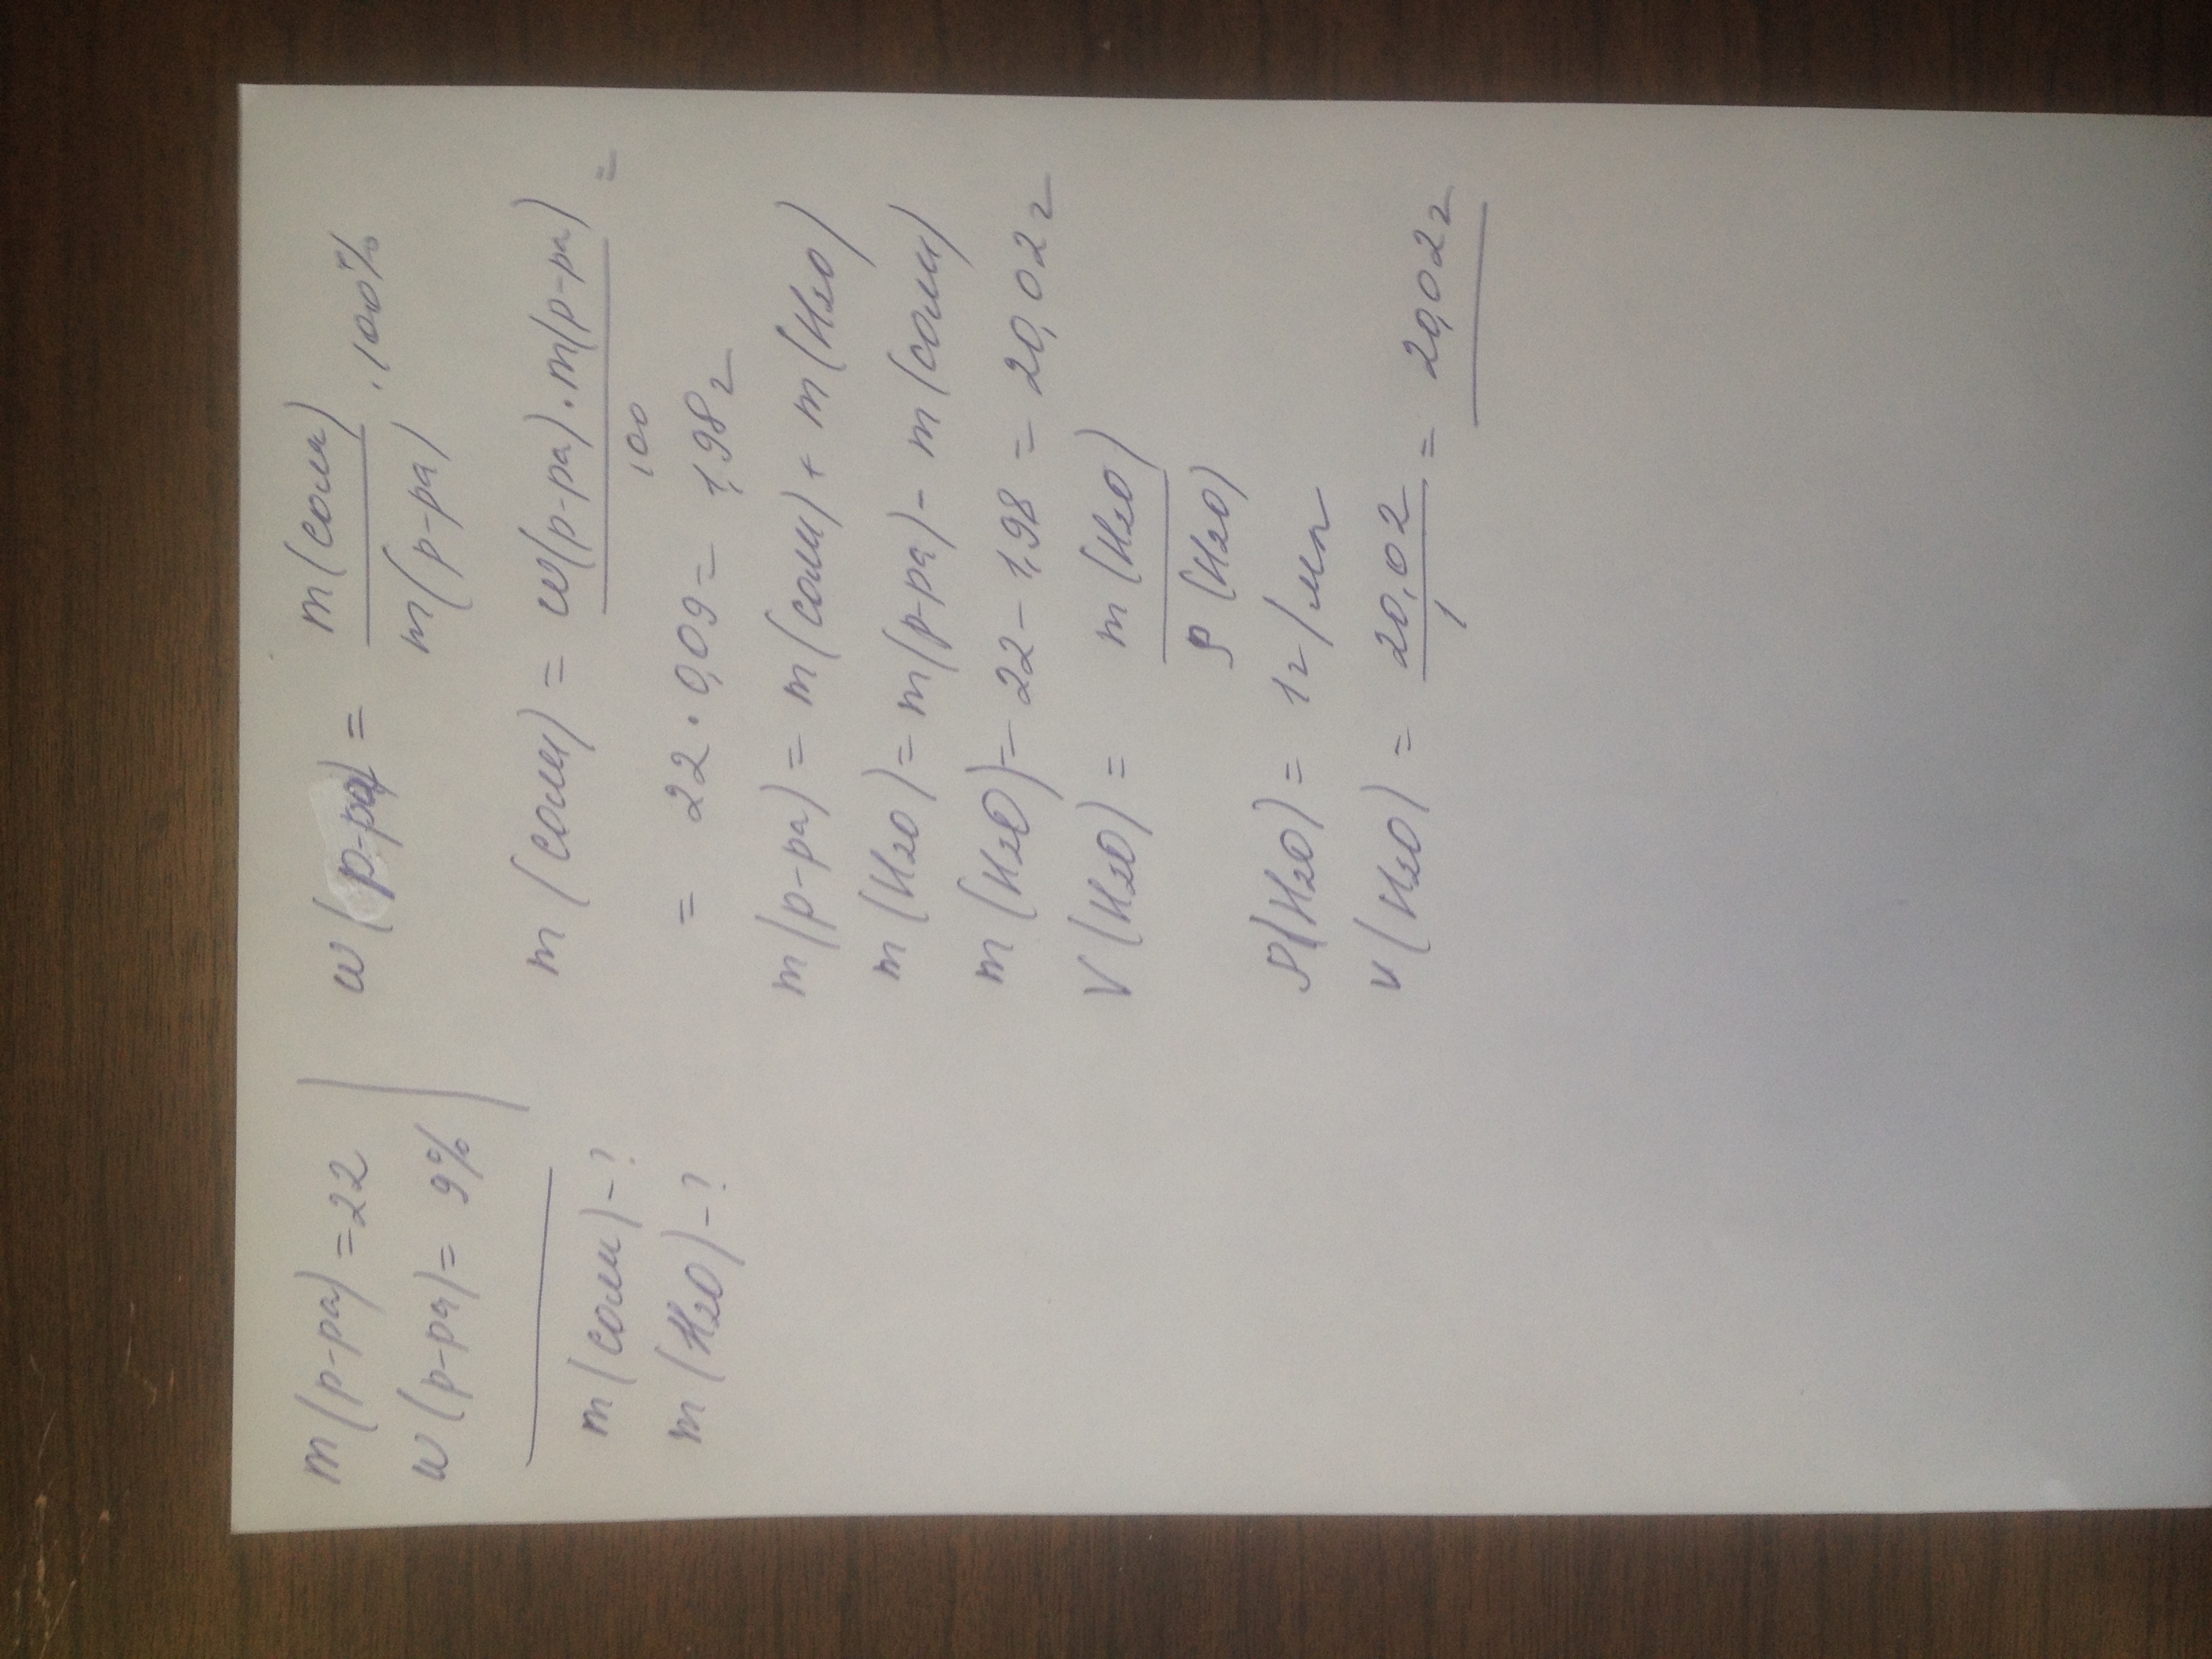 m(р-ра)=22
w(р-ра)= 9%
m(соли)-?
m(H2O)-?
w(р-ра) = m(соли)/m(р-ра) · 100%
m(соли) = w(р-ра)·m(р-ра)/100 =
= 22 · 0,09 = 1,98 г
m(р-ра) = m(соли) + m(H2O)
m(H2O) = m(р-ра) - m(соли)
m(H2O) = 22 - 1,98 = 20,02 г
V(H2O) = m(H2O)/ρ(H2O)
ρ(H2O) = 1г/мл
V(H2O) = 20,02/1 = 20,02г